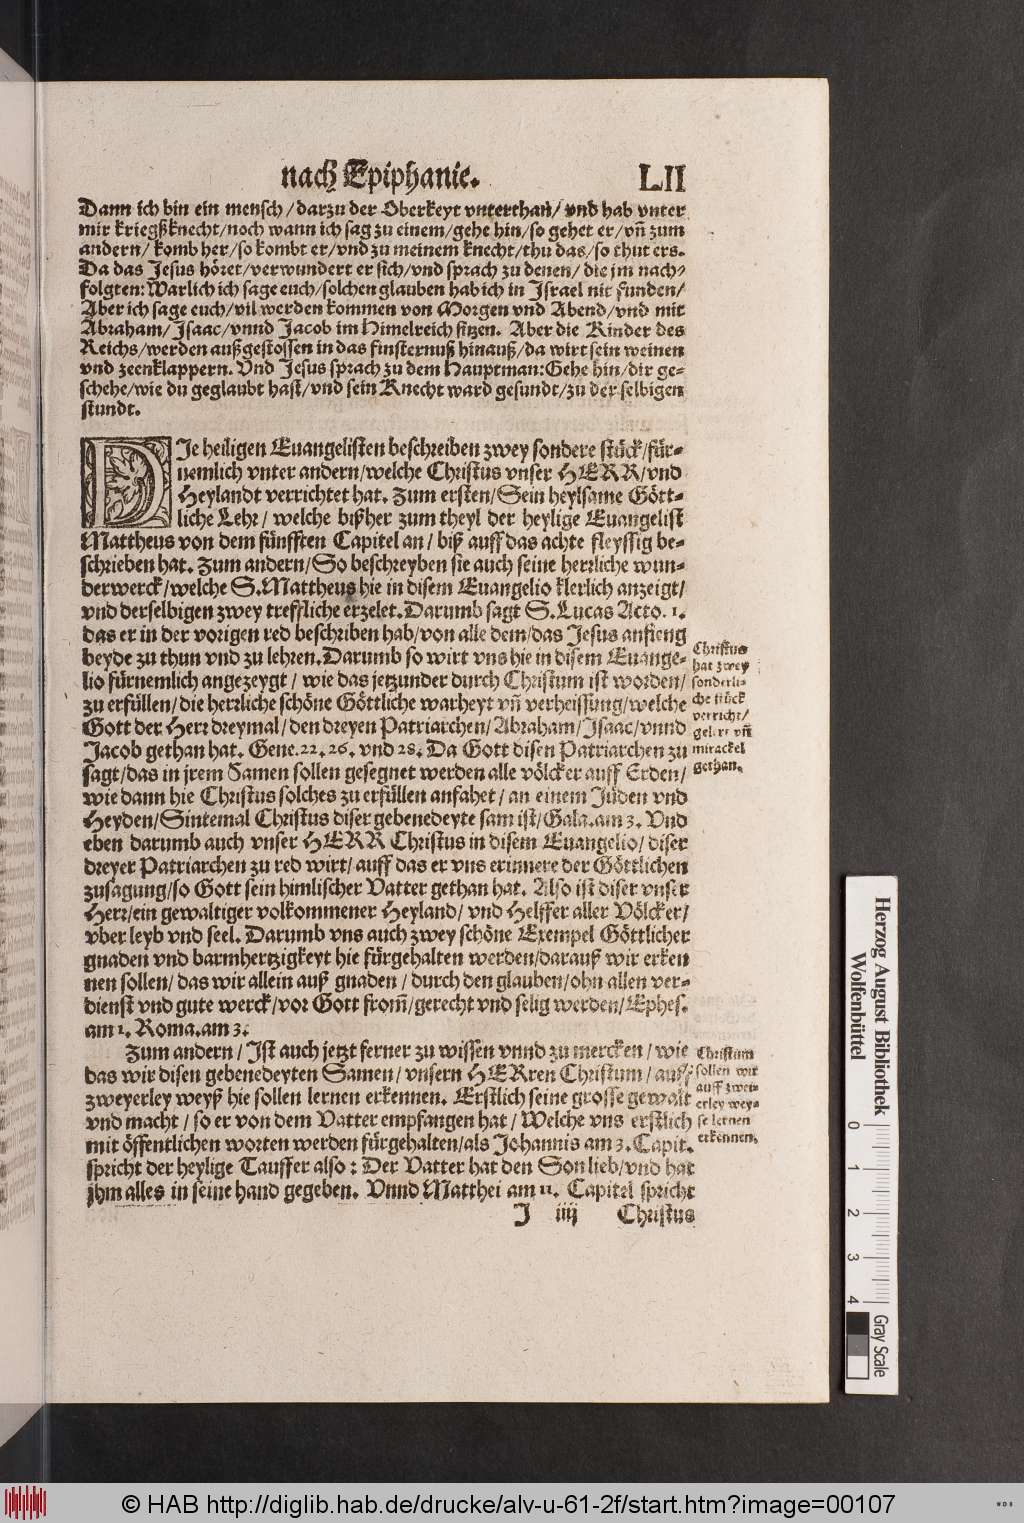 nach Epiphanie. LII
Dann ich bin ein mensch / darzu der Oberkeyt vnterthan / vnd hab vnter
mir kriegßknecht / noch wann ich sag zu einem / gehe hin / so gehet er / vñ zum
andern / komb her / so kombt er / vnd zu meinem knecht / thu das / so thut ers.
Da das Jesus höret / verwundert er sich / vnd sprach zu denen / die jm nach-
folgten: Warlich ich sage euch / solchen glauben hab ich in Israel nit funden /
Aber ich sage euch / vil werden kommen von Morgen vnd Abend / vnd mit
Abraham / Isaac / vnnd Jacob im Himelreich sitzen. Aber die Kinder des
Reichs / werden außgestossen in das finsternuß hinauß / da wirt sein weinen
vnd zeenklappern. Vnd Jesus sprach zu dem Hauptman: Gehe hin / dir ge-
schehe / wie du geglaubt hast / vnd sein Knecht ward gesundt / zu der selbigen
stundt.
DJe heiligen Euangelisten beschreiben zwey sondere stück / für-
nemlich vnter andern / welche Christus vnser HERR / vnd
Heylandt verrichtet hat. Zum ersten / Sein heylsame Gött-
liche Lehr / welche bißher zum theyl der heylige Euangelist
Mattheus von dem fünfften Capitel an / biß auff das achte fleyssig be-
schrieben hat. Zum andern / So beschreyben sie auch seine herrliche wun-
derwerck / welche S. Mattheus hie in disem Euangelio klerlich anzeigt /
vnd derselbigen zwey treffliche erzelet. Darumb sagt S. Lucas Acto. 1.
das er in der vorigen red beschriben hab / von alle dem / das Jesus anfieng
beyde zu thun vnd zu lehren. Darumb so wirt vns hie in disem Euange-
lio fürnemlich angezeygt / wie das jetzunder durch Christum ist worden /
zu erfüllen / die herrliche schöne Göttliche warheyt vñ verheissung / welche
Gott der Herr dreymal / den dreyen Patriarchen / Abraham / Isaac / vnnd
Jacob gethan hat. Gene. 22. 26. vnd 28. Da Gott disen Patriarchen zu
sagt / das in jrem Samen sollen gesegnet werden alle völcker auff Erden /
wie dann hie Christus solches zu erfüllen anfahet / an einem Jüden vnd
Heyden / Sintemal Christus diser gebenedeyte sam ist / Gala. am 3. Vnd
eben darumb auch vnser HERR Christus in disem Euangelio / diser
dreyer Patriarchen zu red wirt / auff das er vns erinnere der Göttlichen
zusagung / so Gott sein himlischer Vatter gethan hat. Also ist diser vnser
Herr / ein gewaltiger volkommener Heyland / vnd Helffer aller Völcker /
vber leyb vnd seel. Darumb vns auch zwey schöne Exempel Göttlicher
gnaden vnd barmhertzigkeyt hie fürgehalten werden / darauß wir erken
nen sollen / das wir allein auß gnaden / durch den glauben / ohn allen ver-
dienst vnd gute werck / vor Gott from̃ / gerecht vnd selig werden / Ephes.
am 1. Roma. am 3.
Christus
hat zwey
sonderli-
che stück
verricht /
gelert vñ
mirackel
gethan.
Zum andern / Ist auch jetzt ferner zu wissen vnnd zu mercken / wie
das wir disen gebenedeyten Samen / vnsern HERren Christum / auff
zweyerley weyß hie sollen lernen erkennen. Erstlich seine grosse gewalt
vnd macht / so er von dem Vatter empfangen hat / Welche vns erstlich
mit öffentlichen worten werden fürgehalten / als Johannis am 3. Capit.
spricht der heylige Tauffer also: Der Vatter hat den Son lieb / vnd hat
jhm alles in seine hand gegeben. Vnnd Matthei am 11. Capitel spricht
Christum
sollen wir
auff zwei-
erley wey-
se lernen
erkennen.
J iiij Christus
Herzog August Bibliothek
Wolfenbüttel
0 1 2 3 4
Gray Scale
© HAB http://diglib.hab.de/drucke/alv-u-61-2f/start.htm?image=00107